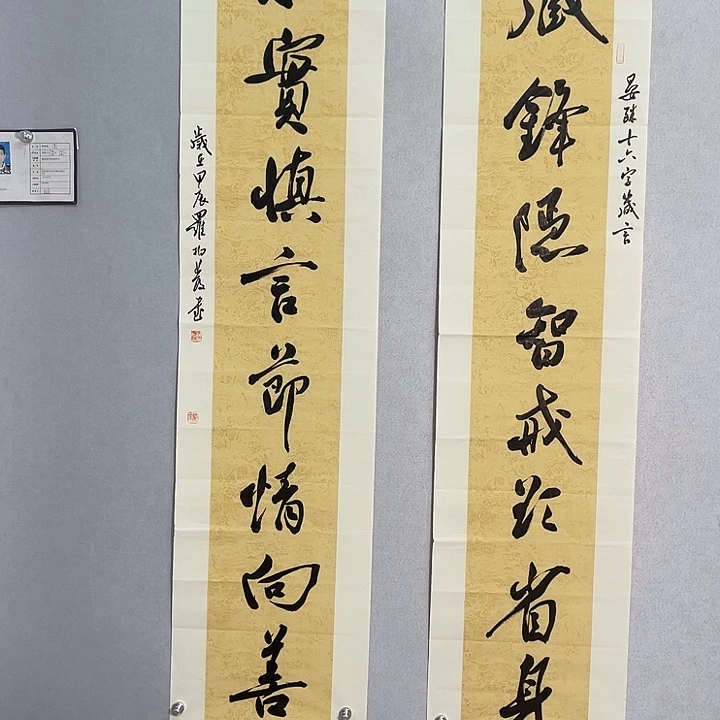 晏殊十六字箴言
藏鋒隱智戒欺省身
實慎言節情向善
歲在甲辰羅書